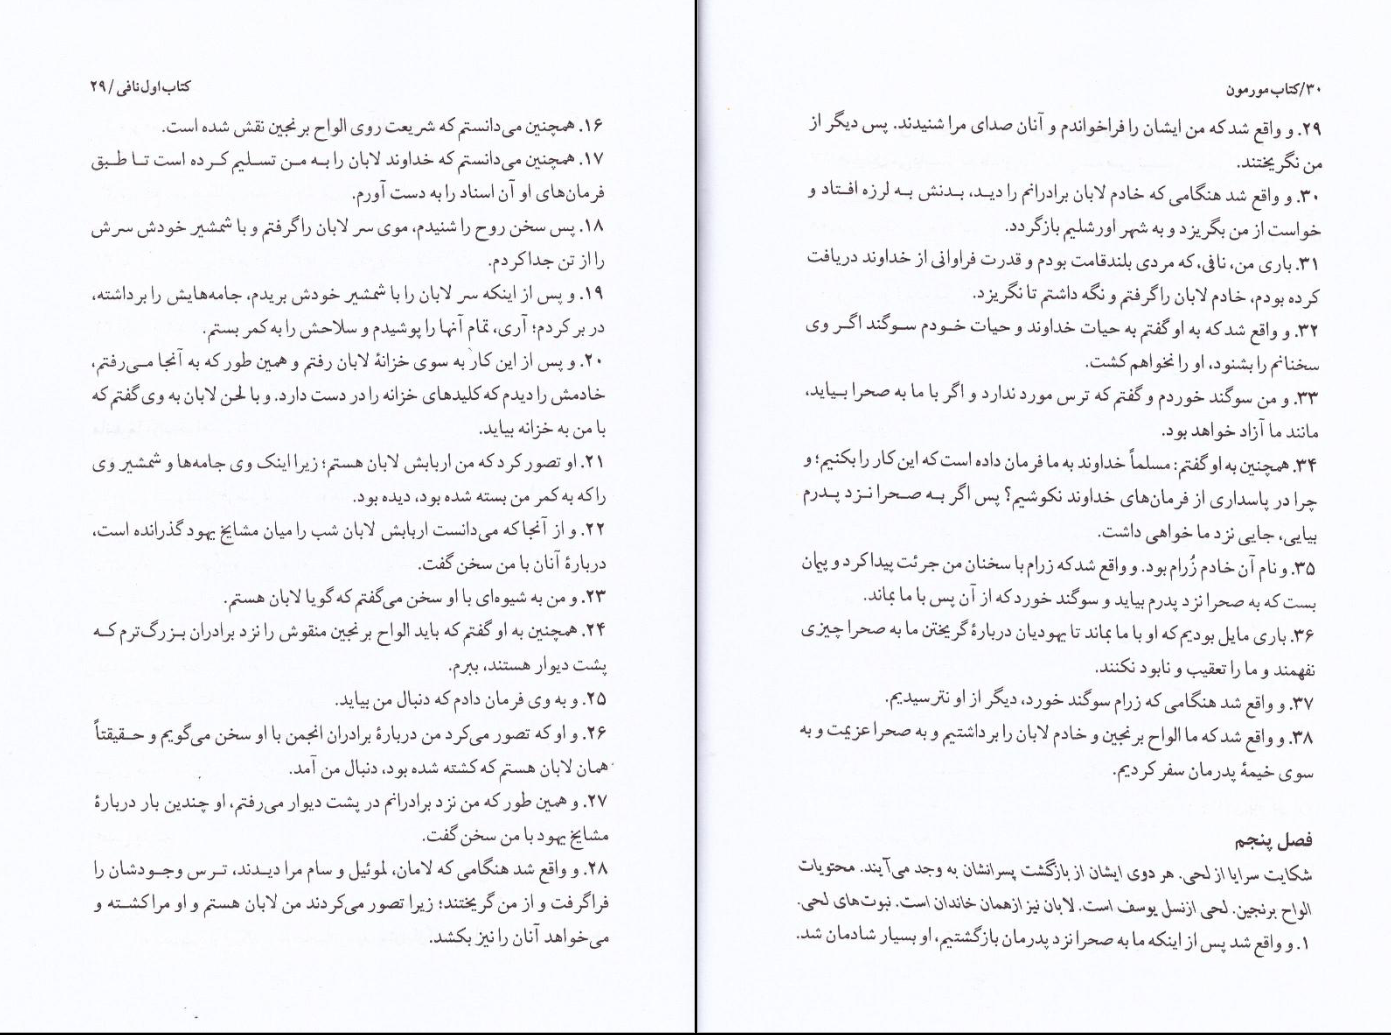 کتاب اول نافی / ۲۹
۱۶. همچنین می‌دانستم که شریعت روی الواح برنجین نقش شده است.
۱۷. همچنین می‌دانستم که خداوند لابان را به من تسلیم کرده است تا طبق
فرمان‌های او آن اسناد را به دست آورم.
۱۸. پس سخن روح را شنیدم، موی سر لابان را گرفتم و با شمشیر خودش سرش
را از تن جدا کردم.
۱۹. و پس از اینکه سر لابان را با شمشیر خودش بریدم، جامه‌هایش را برداشته،
در بر کردم؛ آری، تمام آنها را پوشیدم و سلاحش را به کمر بستم.
۲۰. و پس از این کار به سوی خزانهٔ لابان رفتم و همین طور که به آنجا می‌رفتم،
خادمش را دیدم که کلیدهای خزانه را در دست دارد. و با لحن لابان به وی گفتم که
با من به خزانه بیاید.
۲۱. او تصور کرد که من اربابش لابان هستم؛ زیرا اینک وی جامه‌ها و شمشیر وی
را که به کمر من بسته شده بود، دیده بود.
۲۲. و از آنجا که می‌دانست اربابش لابان شب را میان مشایخ یهود گذرانده است،
دربارهٔ آنان با من سخن گفت.
۲۳. و من به شیوه‌ای با او سخن می‌گفتم که گویا لابان هستم.
۲۴. همچنین به او گفتم که باید الواح برنجین منقوش را نزد برادران بزرگ‌ترم که
پشت دیوار هستند، ببرم.
۲۵. و به وی فرمان دادم که دنبال من بیاید.
۲۶. و او که تصور می‌کرد من دربارهٔ برادران انجمن با او سخن می‌گویم و حقیقتاً
همان لابان هستم که کشته شده بود، دنبال من آمد.
۲۷. و همین طور که من نزد برادرانم در پشت دیوار می‌رفتم، او چندین بار دربارهٔ
مشایخ یهود با من سخن گفت.
۲۸. و واقع شد هنگامی که لامان، لموئیل و سام مرا دیدند، ترس وجودشان را
فراگرفت و از من گریختند؛ زیرا تصور می‌کردند من لابان هستم و او مرا کشته و
می‌خواهد آنان را نیز بکشد.
۳۰/کتاب مورمون
۲۹. و واقع شد که من ایشان را فراخواندم و آنان صدای مرا شنیدند. پس دیگر از
من نگریختند.
۳۰. و واقع شد هنگامی که خادم لابان برادرانم را دید، بدنش به لرزه افتاد و
خواست از من بگریزد و به شهر اورشلیم بازگردد.
۳۱. باری من، نافی، که مردی بلندقامت بودم و قدرت فراوانی از خداوند دریافت
کرده بودم، خادم لابان را گرفتم و نگه داشتم تا نگریزد.
۳۲. و واقع شد که به او گفتم به حیات خداوند و حیات خودم سوگند اگر وی
سخنانم را بشنود، او را نخواهم کشت.
۳۳. و من سوگند خوردم و گفتم که ترس مورد ندارد و اگر با ما به صحرا بیاید،
مانند ما آزاد خواهد بود.
۳۴. همچنین به او گفتم: مسلماً خداوند به ما فرمان داده است که این کار را بکنیم؛ و
چرا در پاسداری از فرمان‌های خداوند نکوشیم؟ پس اگر به صحرا نزد پدرم
بیایی، جایی نزد ما خواهی داشت.
۳۵. و نام آن خادم زُرام بود. و واقع شد که زرام با سخنان من جرئت پیدا کرد و پیمان
بست که به صحرا نزد پدرم بیاید و سوگند خورد که از آن پس با ما بماند.
۳۶. باری مایل بودیم که او با ما بماند تا یهودیان دربارهٔ گریختن ما به صحرا چیزی
نفهمند و ما را تعقیب و نابود نکنند.
۳۷. و واقع شد هنگامی که زرام سوگند خورد، دیگر از او نترسیدیم.
۳۸. و واقع شد که ما الواح برنجین و خادم لابان را برداشتیم و به صحرا عزیمت و به
سوی خیمهٔ پدرمان سفر کردیم.
فصل پنجم
شکایت سرایا از لحی. هر دوی ایشان از بازگشت پسرانشان به وجد می‌آیند. محتویات
الواح برنجین. لحی ازنسل یوسف است. لابان نیز ازهمان خاندان است. نبوت‌های لحی.
۱. و واقع شد پس از اینکه ما به صحرا نزد پدرمان بازگشتیم، او بسیار شادمان شد.